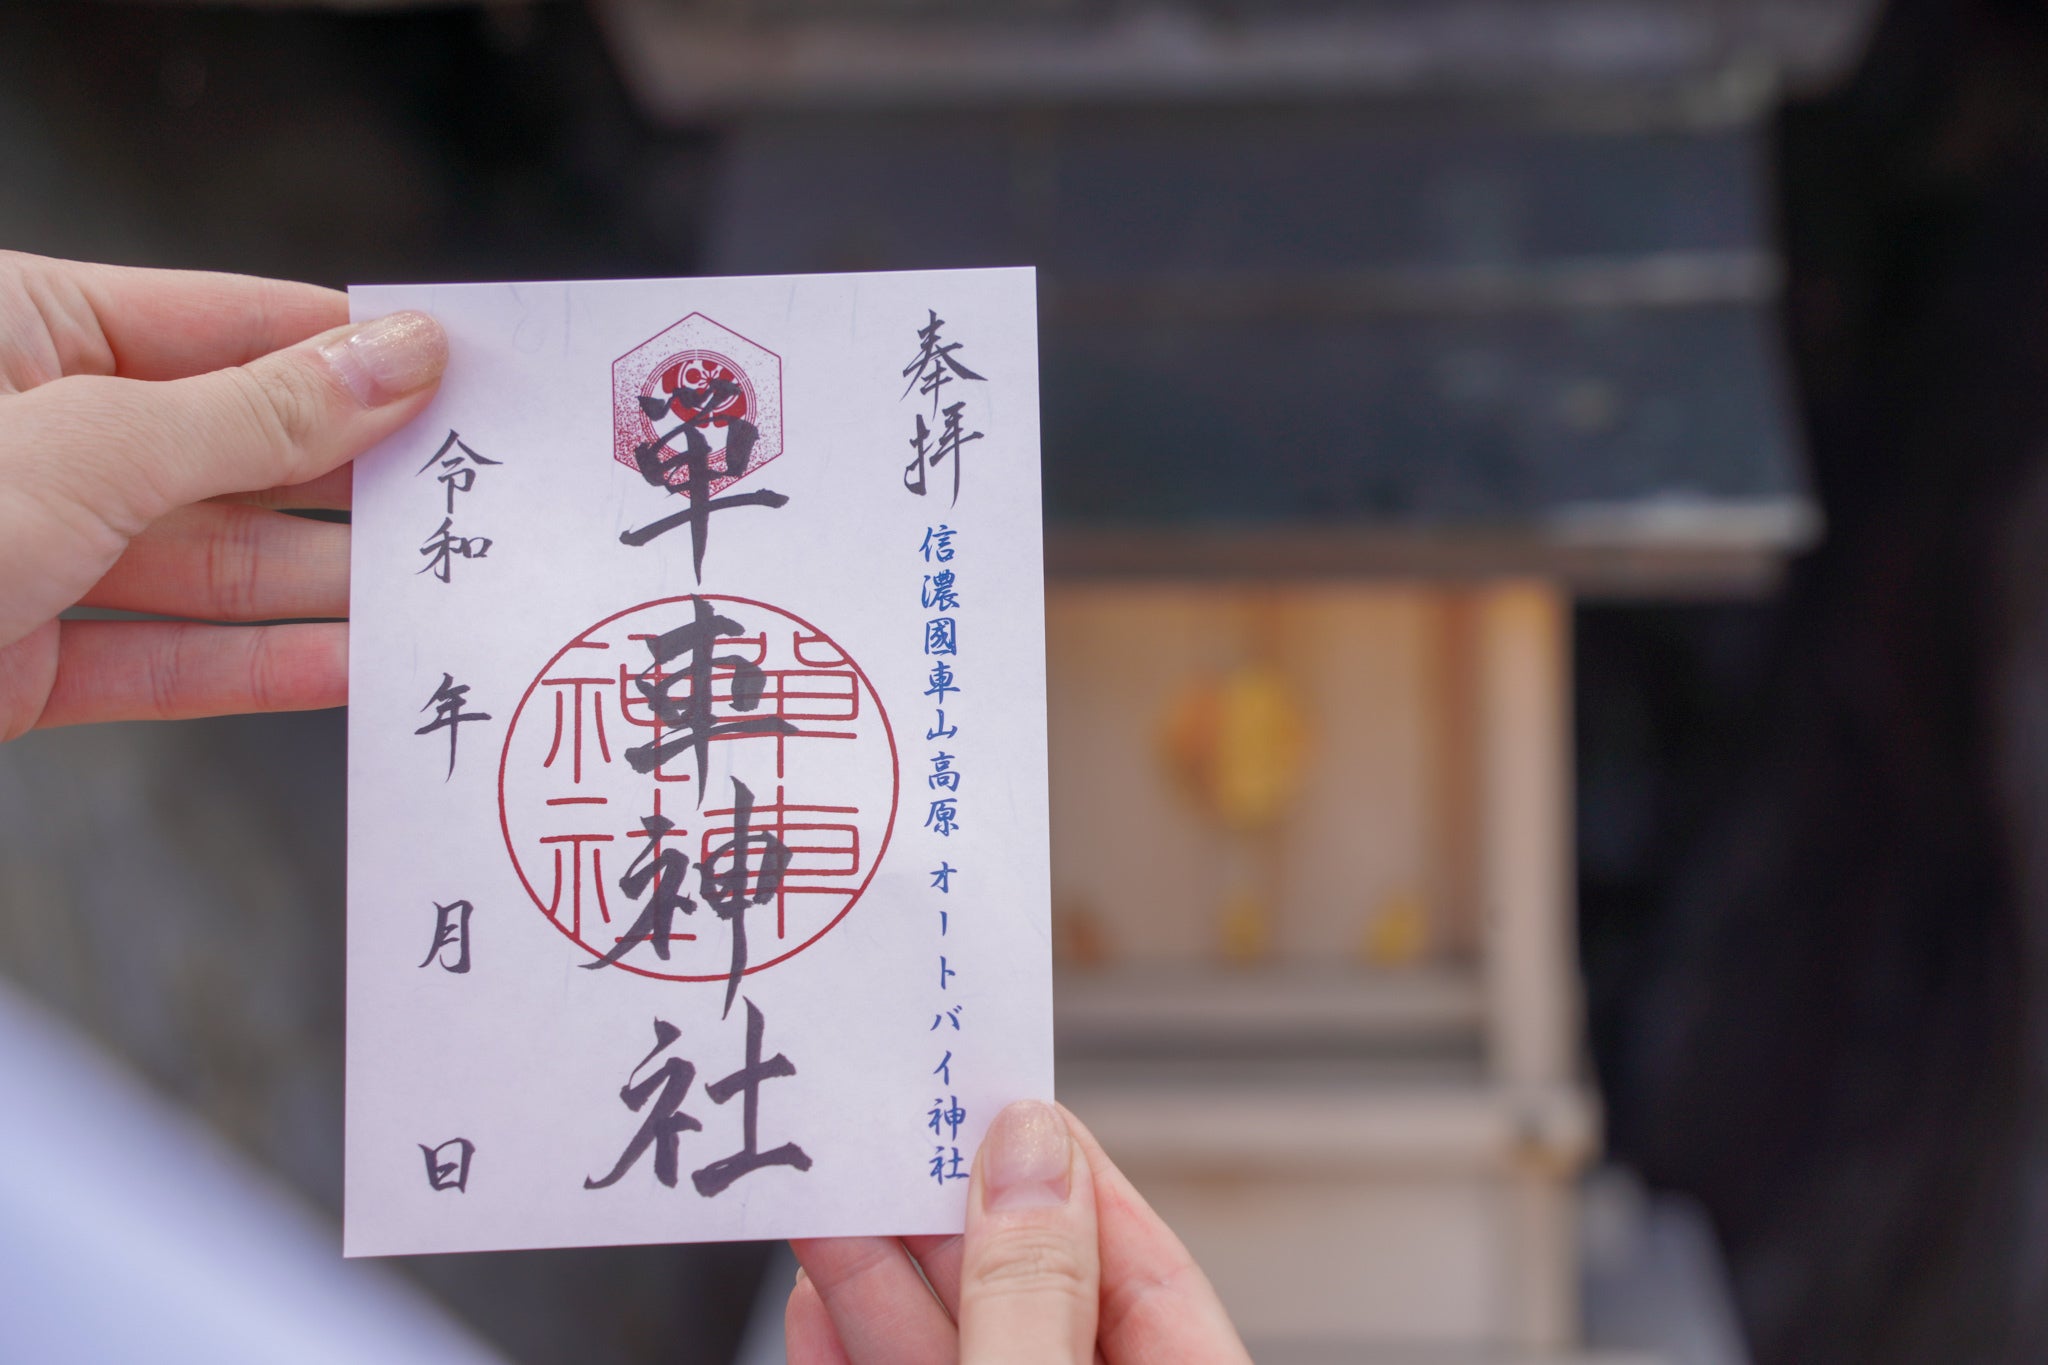 奉拝
信濃國車山高原 オートバイ神社
單車神社
單車神社
令和 年 月 日